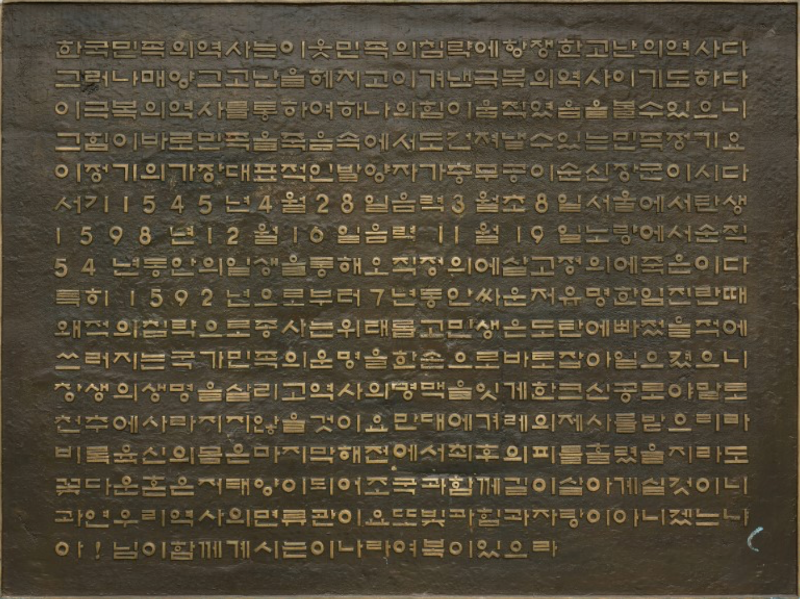 한국민족의역사는이웃민족의침략에항쟁한고난의역사다
그러나매양그고난을헤치고이겨낸극복의역사이기도하다
이극복의역사를통하여하나의힘이움직였음을볼수있으니
그힘이바로민족을죽음속에서도건져낼수있는민족정기요
이정기의가장대표적인발양자가충무공이순신장군이시다
서기1545년4월28일음력3월초8일서울에서탄생
1598년12월16일음력11월19일노량에서순직
54년동안의일생을통해오직정의에살고정의에죽은이다
특히1592년으로부터7년동안싸운저유명한임진란때
왜적의침략으로종사는위태롭고민생은도탄에빠졌을적에
쓰러지는국가민족의운명을한손으로바로잡아일으켰으니
창생의생명을살리고역사의명맥을잇게한크신공로야말로
천추에사라지지않을것이요만대에겨레의제사를받으리라
비록육신의몸은마지막해전에서최후의피를흘렸을지라도
꽃다운혼은저태양이되어조국과함께길이살아계실것이니
과연우리역사의면류관이요또빛과힘과자랑이아니겠는가
아!님이함께계시는이나라여복이있으라